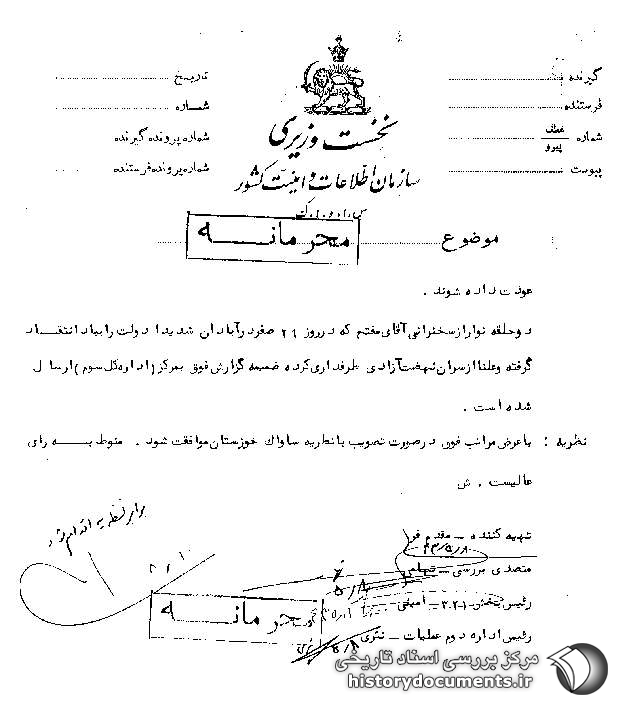 گیرنده
فرستنده
شماره عطف پیرو
پیوست
تاریخ
شماره
شماره پرونده گیرنده
شماره پرونده فرستنده
نخست وزیری
سازمان اطلاعات و امنیت کشور
س.ا.و.ا.ک
موضوع
محرمانه
عودت داده شوند .
دو حلقه نوار از سخنرانی آقای مفتح که در روز ۲۹ صفر در آبادان شدیدا دولت را بباد انتقاد
گرفته و علنا از سران نهضت آزادی طرفداری کرده ضمیمه گزارش فوق بمرکز (اداره کل سوم) ارسال
شده است .
نظریه : با عرض مراتب فوق در صورت تصویب با نظریه ساواک خوزستان موافقت شود . منوط به رای
عالیست . ش
برابر نظریه اقدام شود
تهیه کننده – مقدم فر
۴۳/۵/۸
متصدی بررسی –
۵/۸
رئیس بخش ۳۲۱ –
محرمانه
رئیس اداره دوم عملیات –
مرکز بررسی اسناد تاریخی
historydocuments.ir